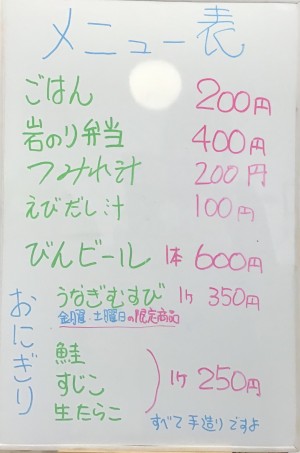 メニュー表
ごはん 200円
岩のり弁当 400円
つみれ汁 200円
えびだし汁 100円
びんビール 1本 600円
おにぎり
うなぎむすび 1ケ 350円
金曜 土曜日の限定商品
鮭
すじこ 1ケ 250円
生たらこ
すべて手造りですよ